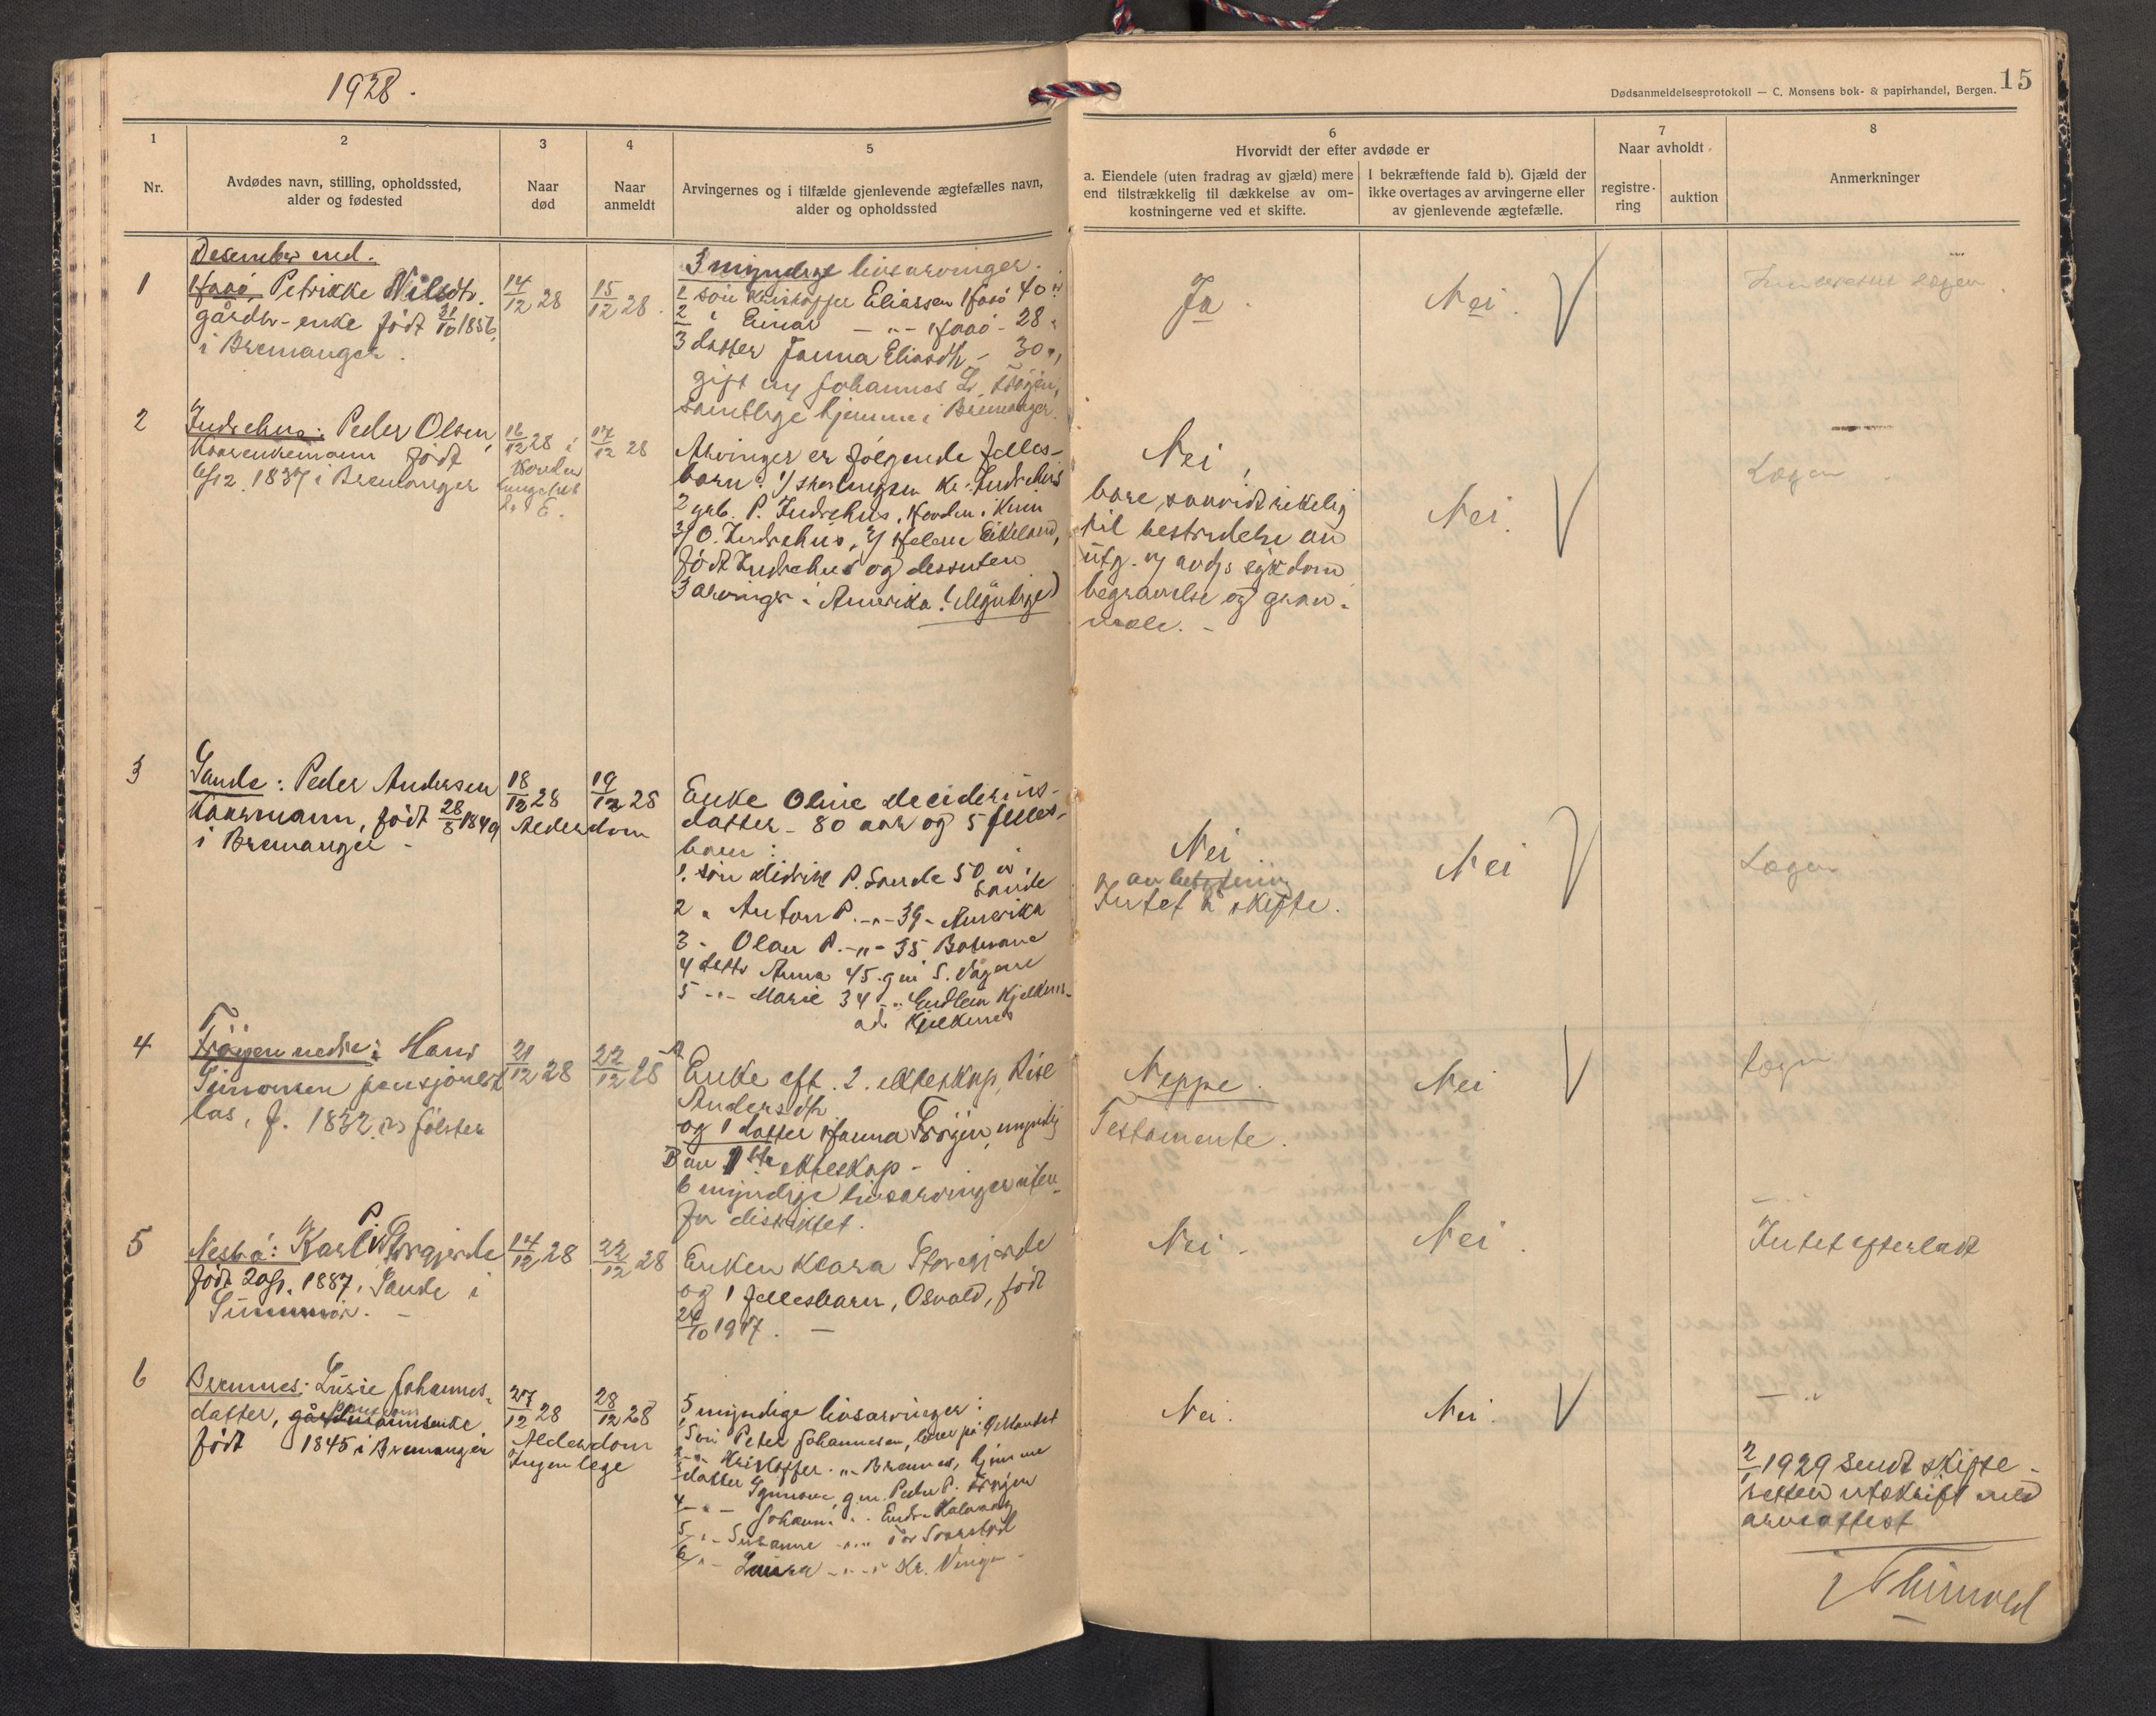 1928.
15
Dødsanmeldelsesprotokoll — C. Monsens bok- & papirhandel, Bergen.
1
Nr.
2
Avdødes navn, stilling, opholdssted,
alder og fødested
3
Naar
død
4
Naar
anmeldt
5
Arvingernes og i tilfælde gjenlevende ægtefælles navn,
alder og opholdssted
6
Hvorvidt der efter avdøde er
a. Eiendele (uten fradrag av gjæld) mere
end tilstrækkelig til dækkelse av om-
kostningerne ved et skifte.
I bekræftende fald b). Gjæld der
ikke overtages av arvingerne eller
av gjenlevende ægtefælle.
7
Naar avholdt
registre-
ring
auktion
8
Anmerkninger
Desember md.
1
Petrikke Nilsdtr.
gårdbr-enke født 31/10 1856,
i Bremanger.
14/12 28
15/12 28.
3 myndige livsarvinger.
1 søn Kristoffer Eliassen 40
2 Einar - „ - 28
3 datter Janna Eliasdtr - 30
gift m/ Johannes L. Frøyen,
samtlige hjemme i Bremanger.
Ja.
Nei.
2
Indrehus: Peder Olsen,
født
6/12 1837 i Bremanger
16/12 28 i
17/12 28
Arvinger er følgende felles-
barn: Kr. Indrehus
2 P. Indrehus, i Kinn
3/ O. Indrehus, Helene Eikeland,
født Indrehus og dessuten
3 arvinger i Amerika. (Myndige)
Nei,
bare saavidt rikelig
til bestridelse av
utg. m/ avds sykdom
begravelse og grav-
mæle. -
Nei.
Lægen
3
Sande: Peder Andersen
Kaarmann, født 28/8 1849
i Bremanger -
18/12 28
Alderdom
19/12 28
Enke Oline
datter - 80 aar og 5 felles-
barn:
1. søn Didrik P. Sande 50
Sande
2 „ Anton P. -„- 39 - Amerika
3 - Olav P. -„- 35
4 dettr Anna 45. gm S. Vågene
5 -„- Marie 34
Kjelkenes
Nei
Intet å skifte.
Nei
Lægen
4
Frøyen nedre: Hans
Simonsen pensjonert
las, f. 1832
21/12 28
22/12 28
Enke eft. 2. ekteskap,
Andersdtr
og 1 datter Hanna Frøyen, myndig
B av 1ste ekteskap -
6 myndige livsarvinger uten-
for distriktet.
Neppe.
Testamente.
Nei
Lægen
5
Karl P. Storegjerde
født 1887. Sande i
Sunnmør. -
14/12 28
22/12 28
Enken Klara Storegjerde
og 1 fellesbarn, Osvald, født
1917. -
Nei -
Nei.
Intet efterladt
6
Bremnes: Lusie Johannes-
datter, gårdmannsenke
født 1845 i Bremanger
27/12 28
Alderdom
Ingen lege
28/12 28
5 myndige livsarvinger:
1 Søn Peter Johannesen, lærer på
2 -„- Kristoffer -„- Bremnes, hjemme
3 datter gm. Peder P. Frøyen
4 -„- Johanne
5 -„- Susanne
6 -„- Laura -„- Kr. Vingen
Nei.
Nei.
— „
2/1 1929 sendt skifte-
retten utskrift med
arveattest